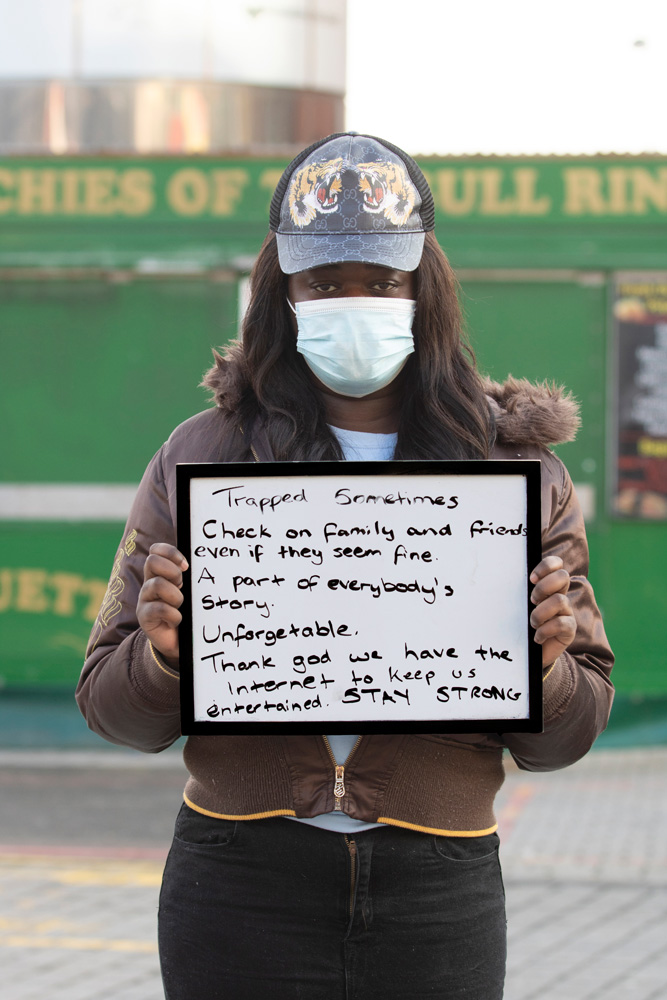 CHIES OF T BULL RIN
UETT
Trapped Sometimes
Check on family and friends
even if they seem fine.
A part of everybody's
Story.
Unforgetable.
Thank god we have the
Internet to keep us
entertained. STAY STRONG